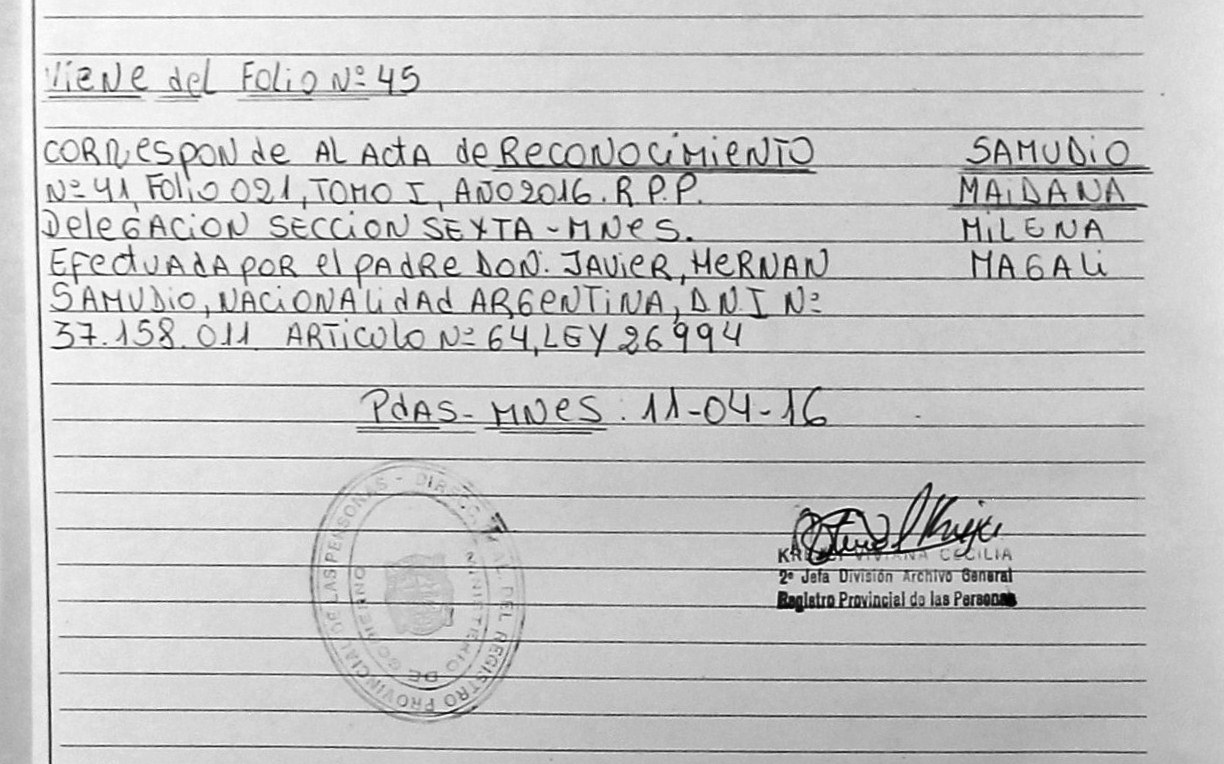 Viene del Folio Nº 45
CORResponde AL ActA de ReCONOCiMieNTO
Nº 41, Folio 021, TOMO I, AÑO 2016. R.P.P.
DeleGACION SECCION SEXTA - MNeS.
EFectUAdA POR el PADRe DON. JAVieR, HeRNAN
SAMUDiO, NACiONALidAd ARGeNTiNA, D.N.I Nº
37.158.011 ARTiCULO Nº 64, LEY 26994
SAMUDiO
MAiDANA
MiLENA
MAGALi
PdAS- MNeS: 11-04-16
DEL REGISTRO PROVINCIAL DE LAS PERSONAS
MINISTERIO DE GOBIERNO
VIVIANA CECILIA
2º Jefa División Archivo General
Registro Provincial de las Personas